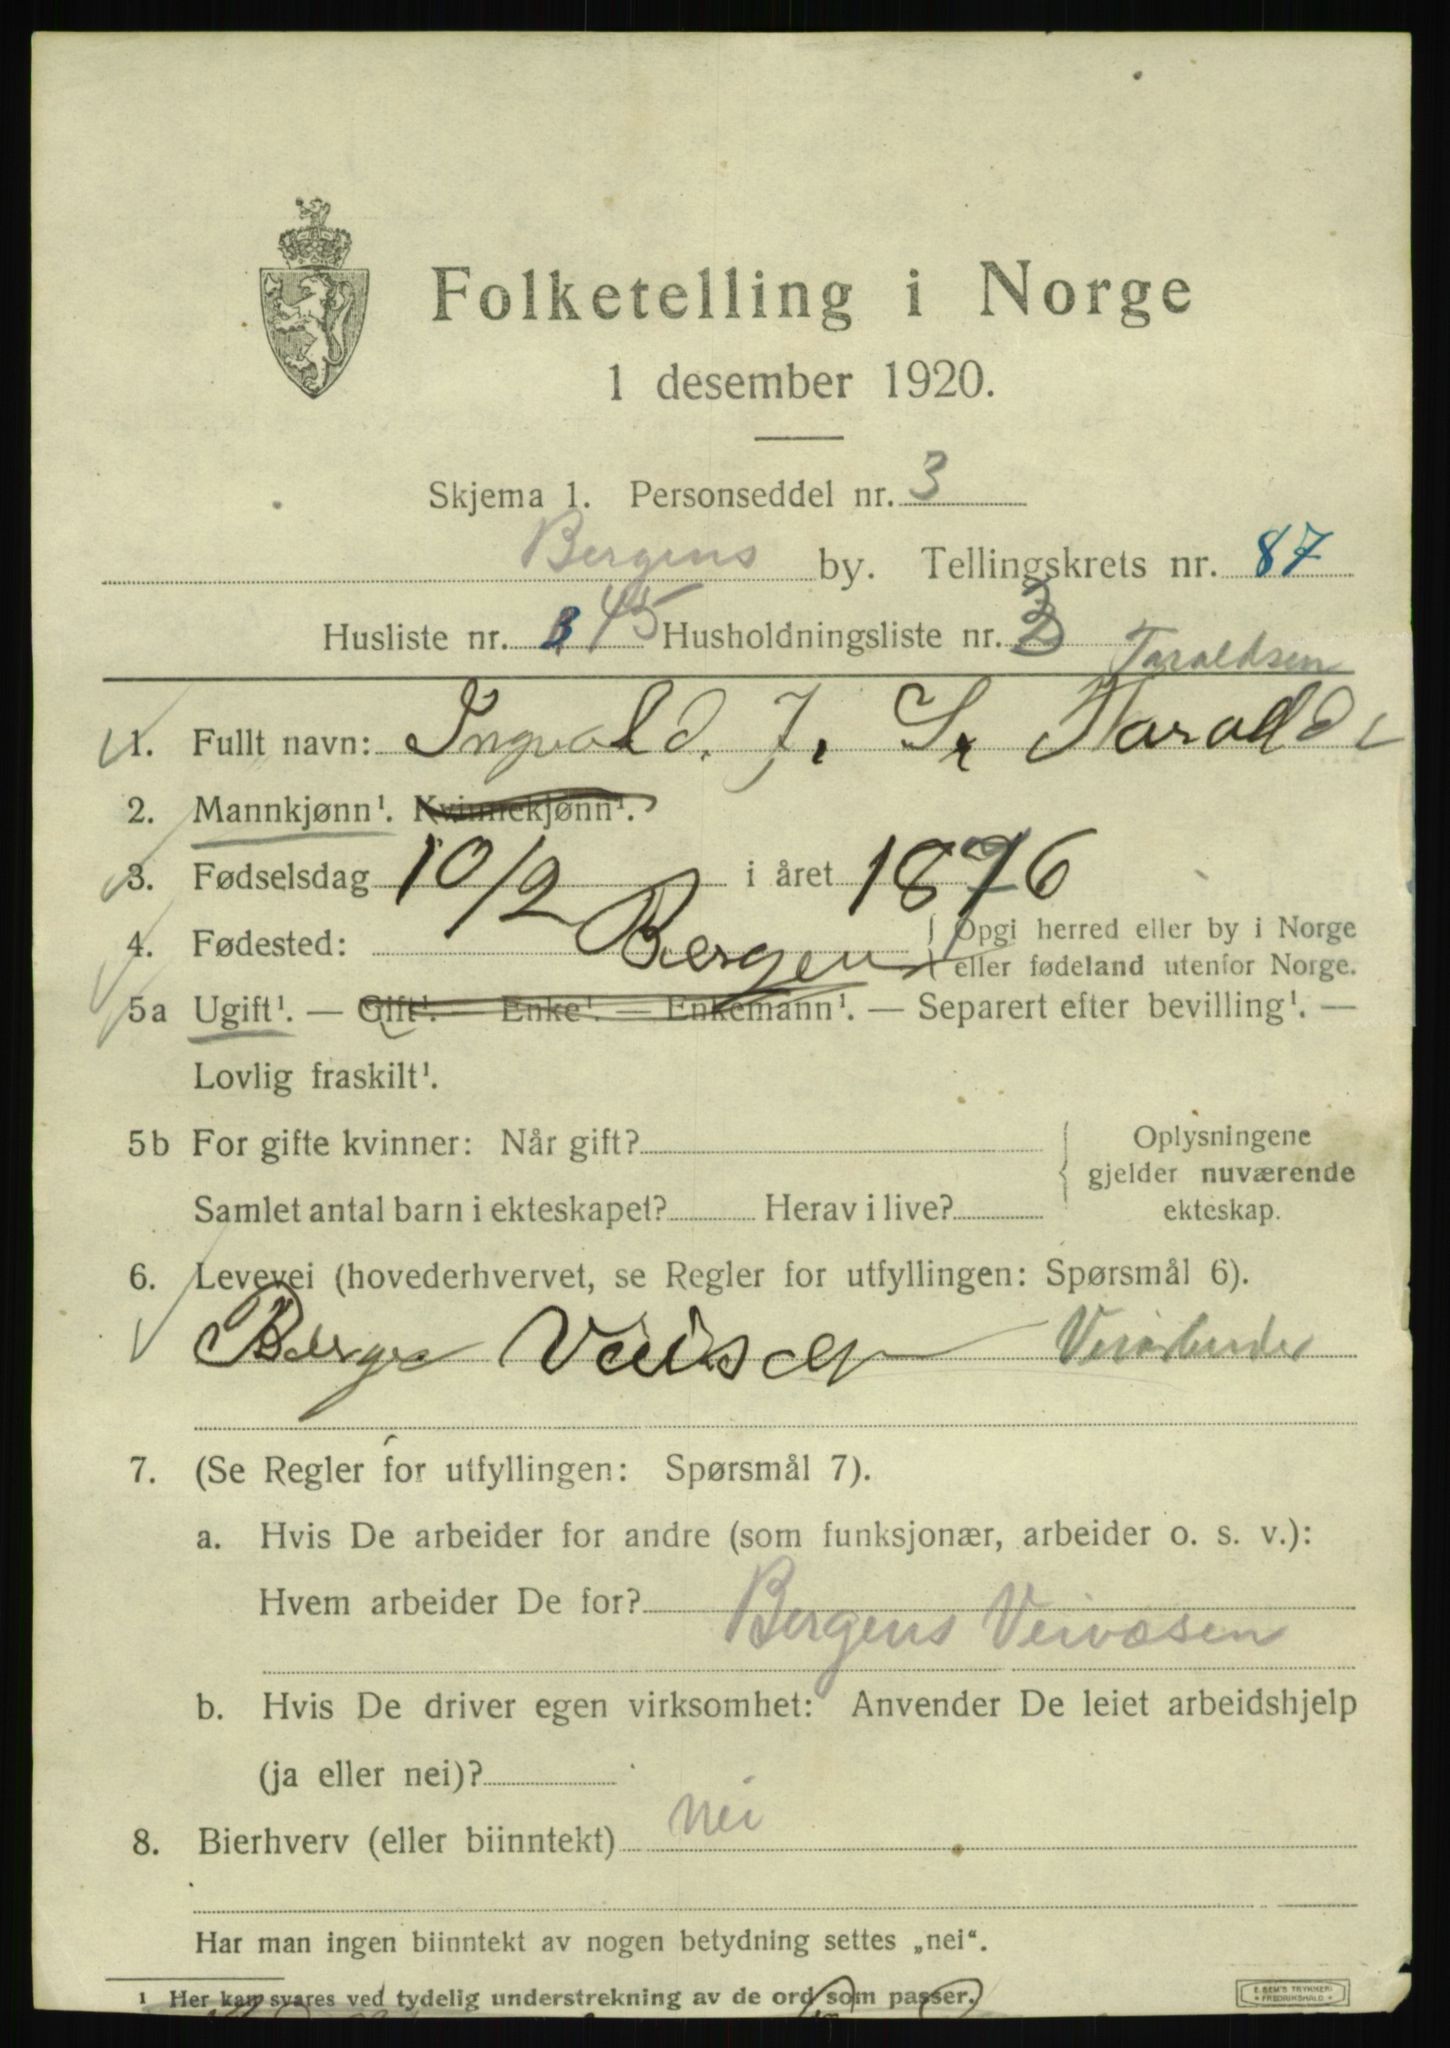 Folketelling i Norge
1 desember 1920.
Skjema 1. Personseddel nr. 3
Bergens by. Tellingskrets nr. 87
Husliste nr. 45 Husholdningsliste nr.
Taraldsen
1. Fullt navn: Ingvald. J. S. Harald
2. Mannkjønn¹. Kvinnekjønn¹.
3. Fødselsdag 10/2 i året 1876
4. Fødested: Bergen { Opgi herred eller by i Norge
eller fødeland utenfor Norge.
5a Ugift¹. — Gift¹. — Enke¹. — Enkemann¹. — Separert efter bevilling¹. —
Lovlig fraskilt¹.
5b For gifte kvinner: Når gift? { Oplysningene
gjelder nuværende
Samlet antal barn i ekteskapet? Herav i live? ekteskap.
6. Levevei (hovederhvervet, se Regler for utfyllingen: Spørsmål 6).
Veiarbeider
7. (Se Regler for utfyllingen: Spørsmål 7).
a. Hvis De arbeider for andre (som funksjonær, arbeider o. s. v.):
Hvem arbeider De for?
Bergens Veivæsen
b. Hvis De driver egen virksomhet: Anvender De leiet arbeidshjelp
(ja eller nei)?
8. Bierhverv (eller biinntekt) Nei
Har man ingen biinntekt av nogen betydning settes „nei“.
¹ Her kan svares ved tydelig understrekning av de ord som passer.
E. SEM'S TRYKKERI
FREDRIKSHALD